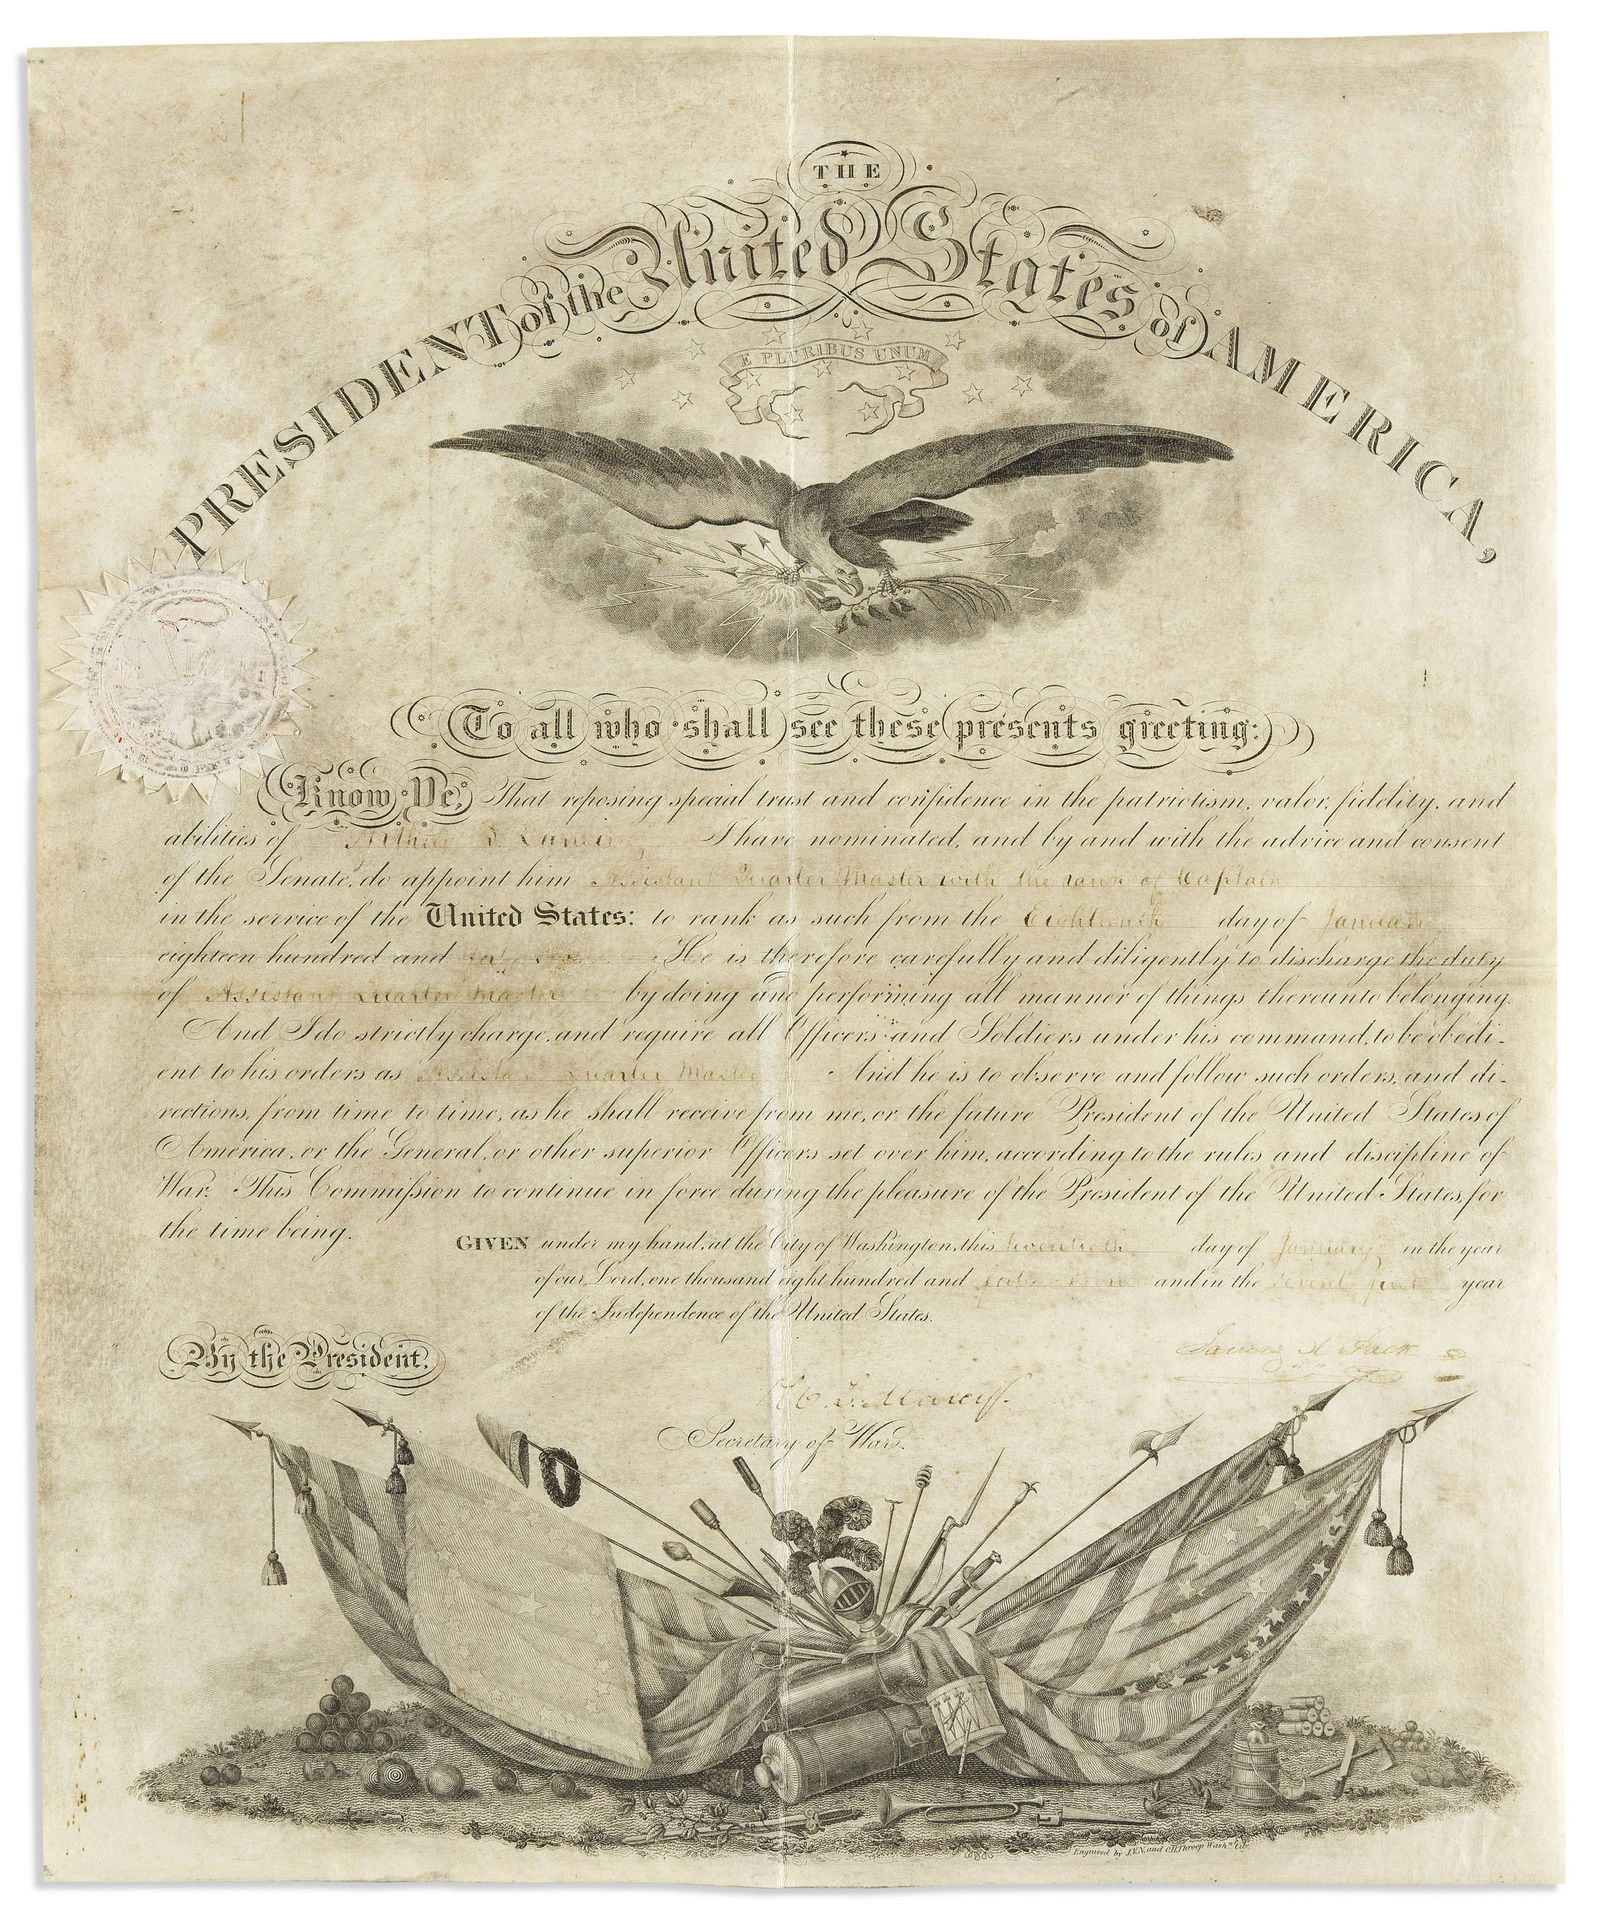 THE
PRESIDENT of the United States of AMERICA,
E PLURIBUS UNUM
To all who shall see these presents greeting:
Know Ye, That reposing special trust and confidence in the patriotism, valor, fidelity, and
abilities of I have nominated, and by and with the advice and consent
of the Senate, do appoint him Assistant Quarter Master with the rank of Captain
in the service of the United States: to rank as such from the Eighteenth day of January
eighteen hundred and He is therefore carefully and diligently to discharge the duty
of Assistant Quarter Master by doing and performing all manner of things thereunto belonging.
And I do strictly charge, and require all Officers and Soldiers under his command, to be obedi-
ent to his orders as Assistant Quarter Master And he is to observe and follow such orders, and di-
rections, from time to time, as he shall receive from me, or the future President of the United States of
America, or the General, or other superior Officers set over him, according to the rules and discipline of
War. This Commission to continue in force during the pleasure of the President of the United States, for
the time being.
GIVEN under my hand, at the City of Washington, this twentieth day of January in the year
of our Lord, one thousand eight hundred and forty seven and in the seventy first year
of the Independence of the United States.
By the President,
James K Polk
W. L. Marcy
Secretary of War.
Engraved by J.V.N. and O.H. Throop Washn. City